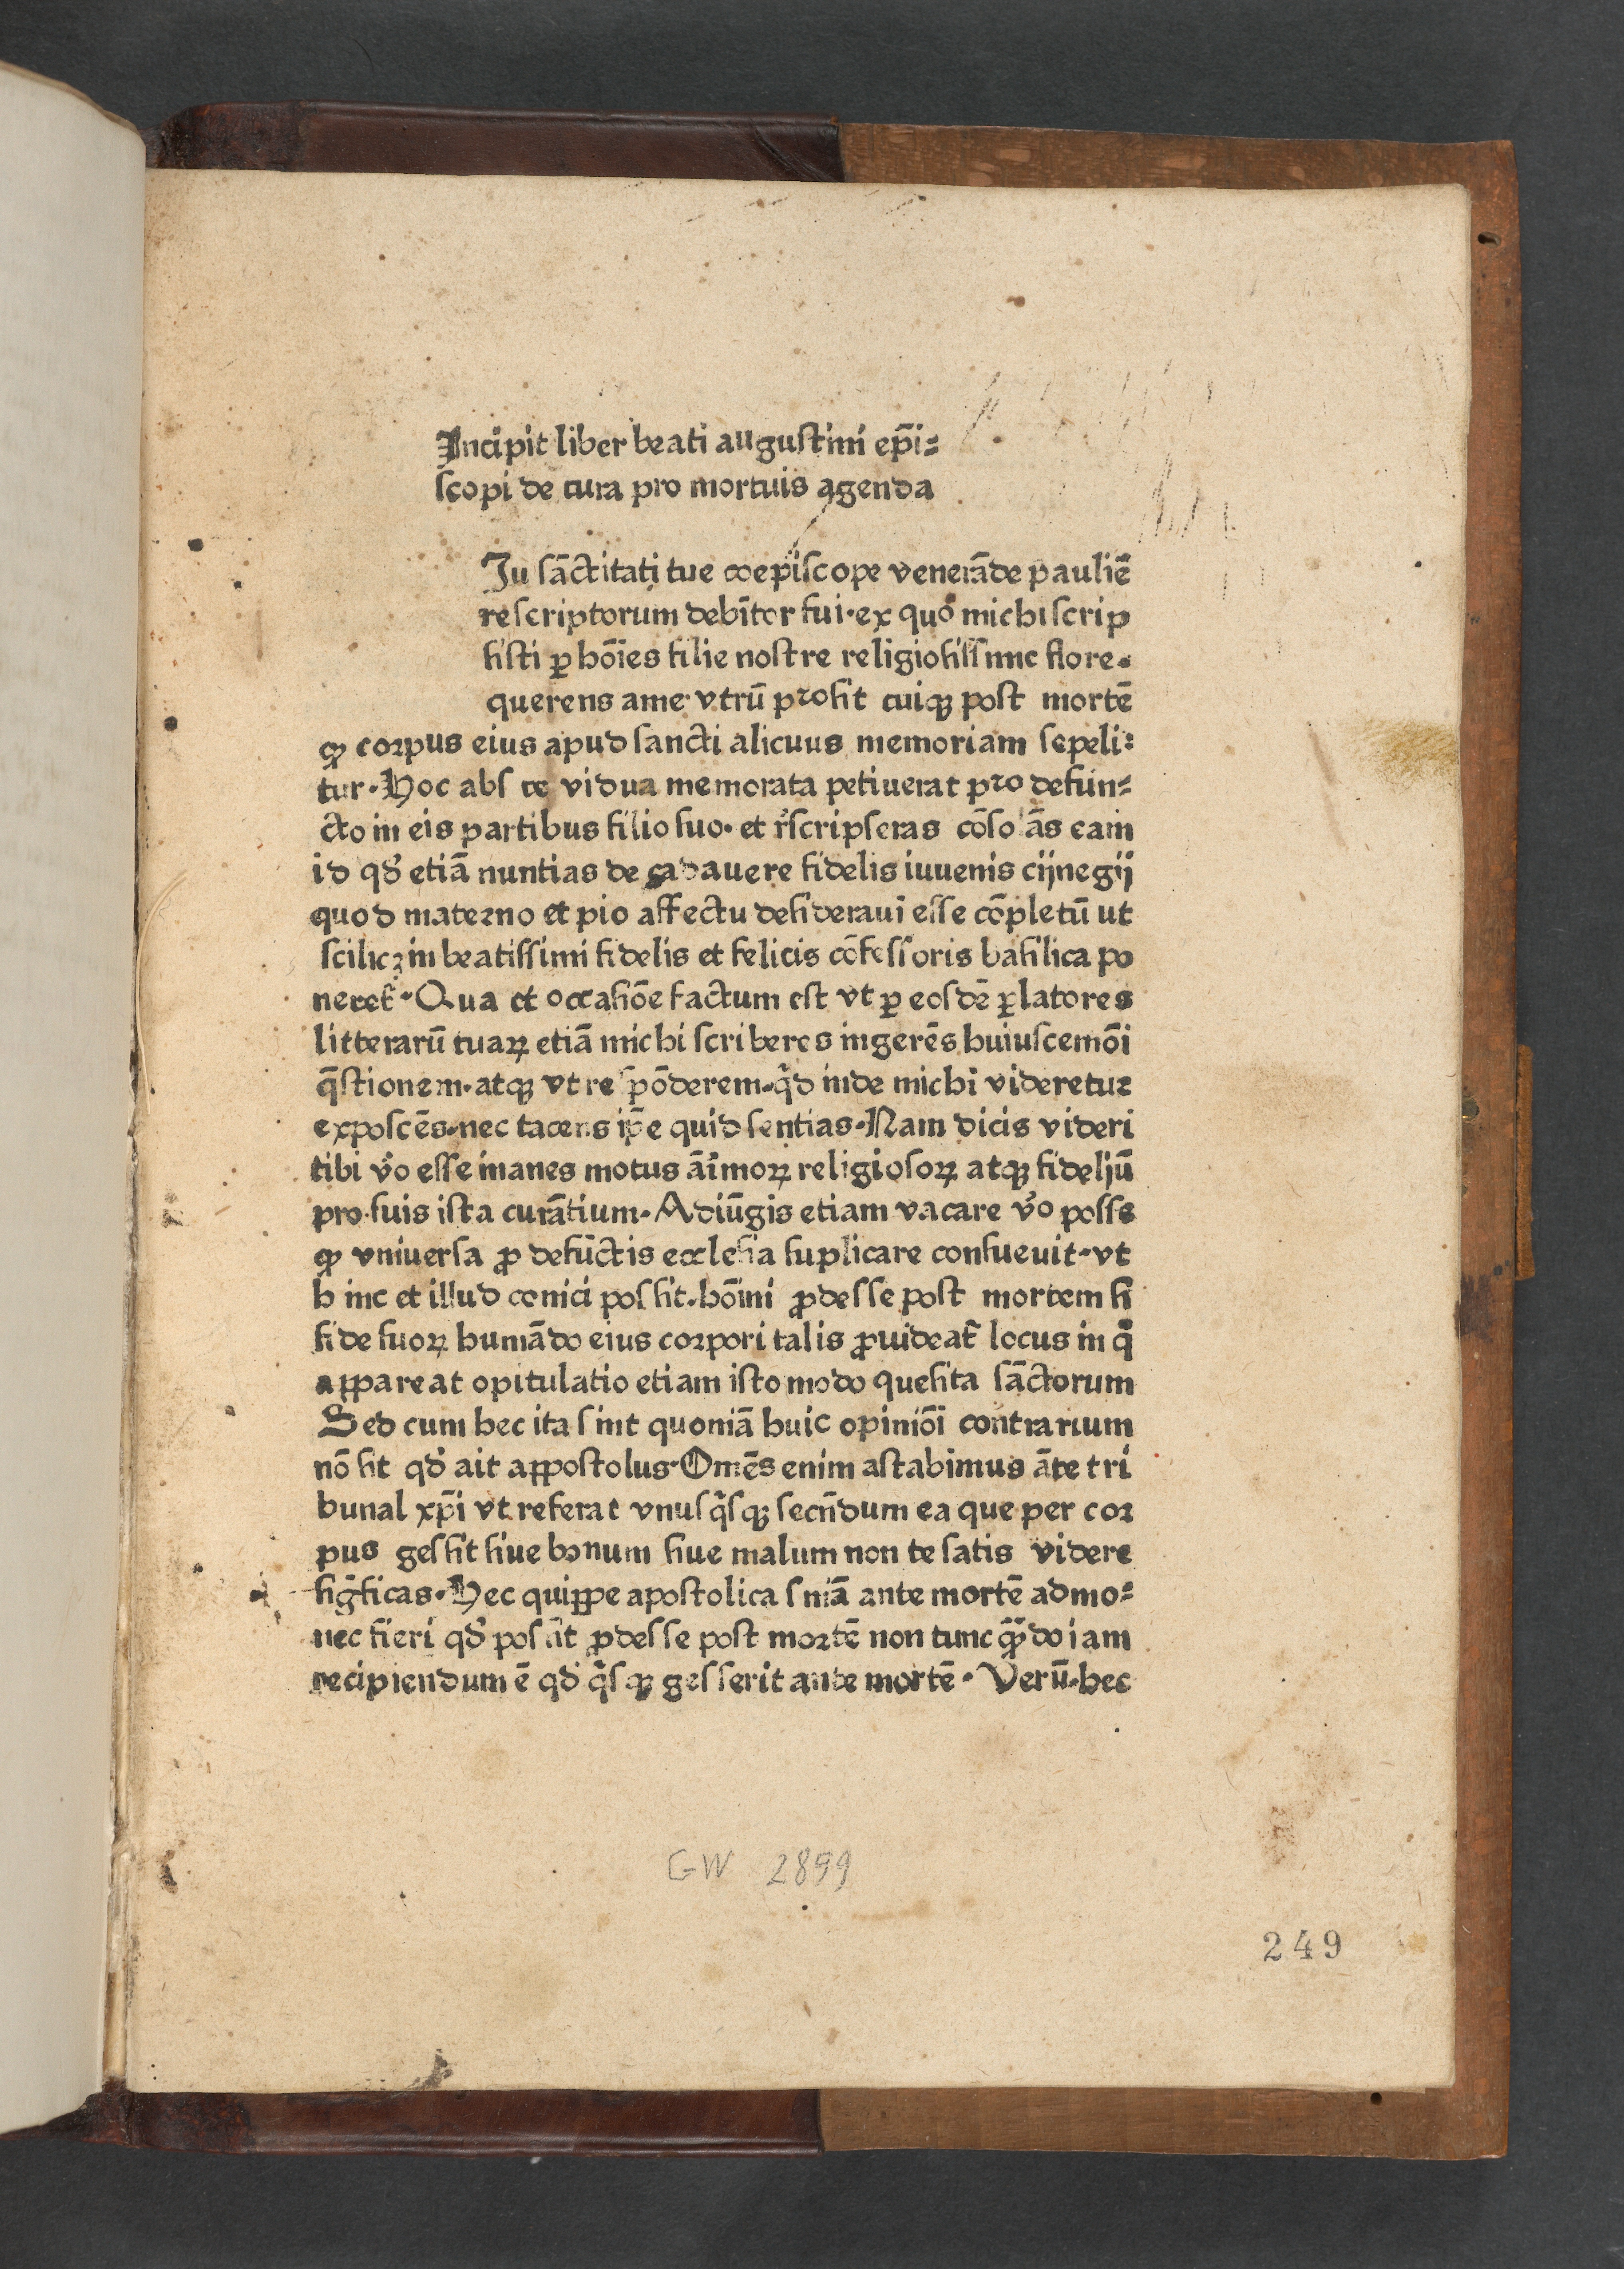 Incipit liber beati augustini epi̅=
scopi de cura pro mortuis agenda
Iu sa̅ctitati tue coepiscope venera̅de paulie̅
rescriptorum debitor fui·ex quo michi scrip
sisti ꝑ ho̅i̅es filie nostre religiosissime flore·
querens ame vtru̅ prosit cuiqꝫ post morte̅
ꝙ corpus eius apud sancti alicuus memoriam sepeli=
tur·Hoc abs te vidua memorata petiuerat pro defun=
cto in eis partibus filio suo·et r̅scripseras co̅sola̅s eam
id qd̅ etia̅ nuntias de cadauere fidelis iuuenis cijnegij
quod materno et pio affectu desideraui esse co̅pletu̅ ut
scilicꝫ in beatissimi fidelis et felicis co̅fessoris basilica po
neret̅·Qua et occasio̅e factum est vt ꝑ eosde̅ ꝑlatores
litteraru̅ tuaꝝ etia̅ michi scriberes ingere̅s huiuscemo̅i
q̅stionem·atqꝫ vt respo̅derem·qͥd inde michi videretur
exposce̅s·nec tacens ip̅e quid sentias·Nam dicis videri
tibi vͦo esse inanes motus a̅i̅moꝝ religiosoꝝ atqꝫ fideliu̅
pro suis ista cura̅tium·Adiu̅gis etiam vacare vͦo posse
ꝙ vniuersa ꝓ defu̅ctis ecclesia suplicare consueuit·vt
hinc et illud conici possit·ho̅i̅ni ꝓdesse post mortem si
fide suoꝝ huma̅do eius corpori talis ꝓuideat̅ locus in qͦ
appareat opitulatio etiam isto modo quesita sa̅ctorum
Sed cum hec ita sint quonia̅ huic opinio̅i contrarium
no̅ sit qd̅ ait appostolus·Om̅e̅s enim astabimus a̅te tri
bunal xp̅i vt referat vnusqͥsqꝫ secn̅dum ea que per cor
pus gessit siue bonum siue malum non te satis videre
sig̅ficas·Hec quippe apostolica sn̅ia̅ ante morte̅ admo=
nec fieri qd̅ possit ꝓdesse post morte̅ non tunc qꝫ̅do iam
recipiendum e̅ qd̅ qͥsqꝫ gesserit ante morte̅·Veru̅·hec
GW 2899
249